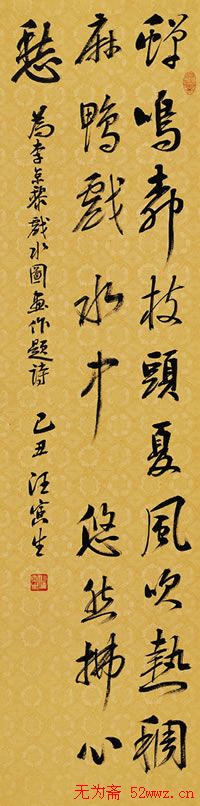 蟬鳴郁枝頭夏風吹熱稠
麻鴨戲水中悠然拂心
愁
為李戲水圖畫作題詩 己丑 汪寅生
无为斋 52wwz.cn